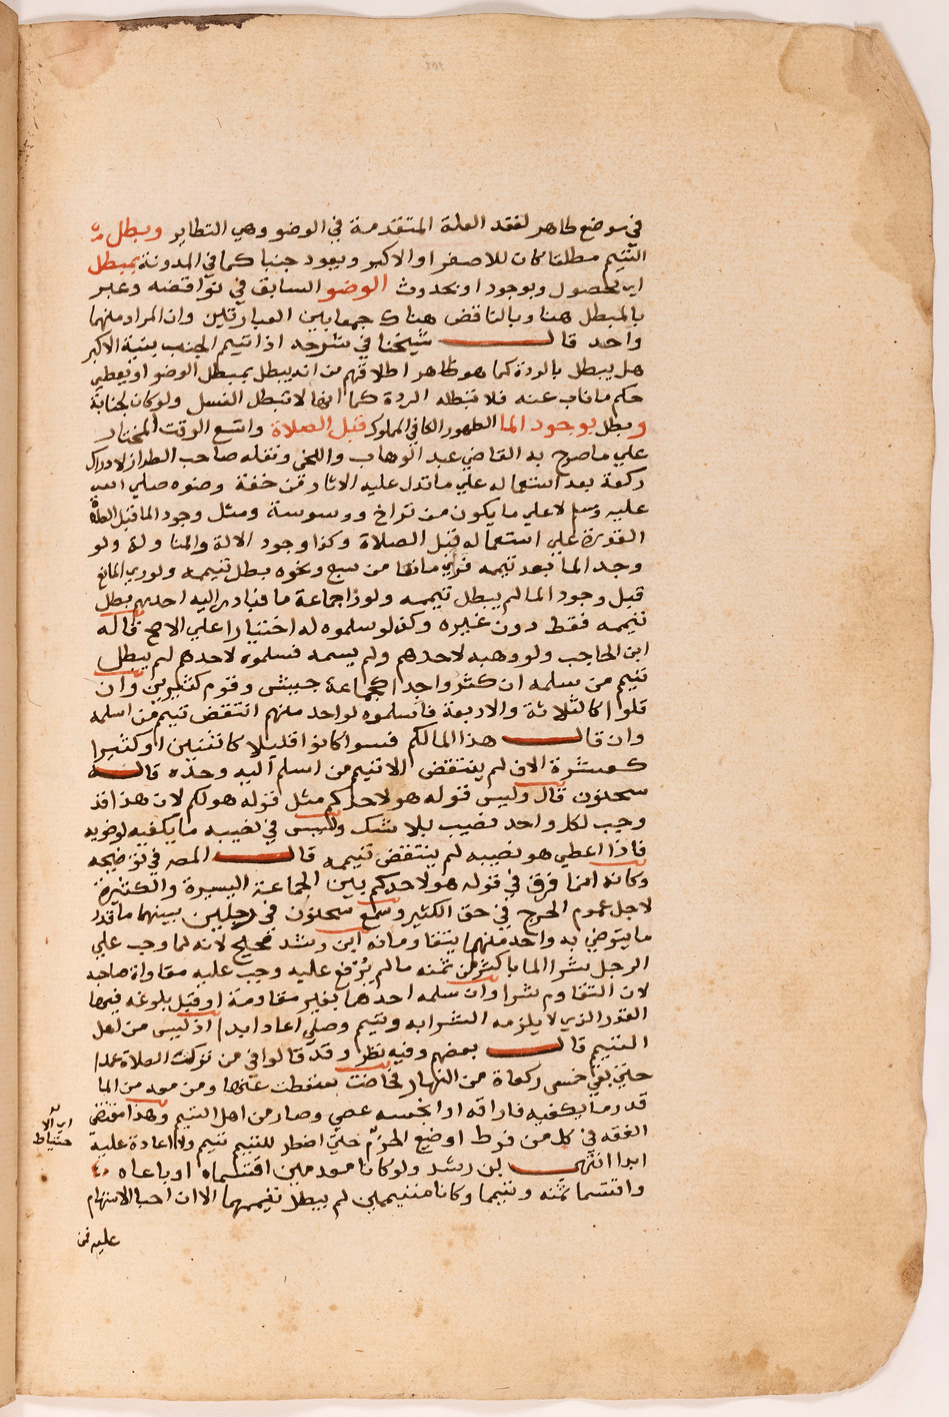 في موضع طاهر لفقد العلة المتقدمة في الوضو وهي التطاير وبطل
التيمم مطلقا كان للاصغر او الاكبر ويعود جنبا كما في المدونة بمبطل
اي بحصول وبوجود او بحدوث الوضو السابق في نواقضه وعبر
بالمبطل هنا وبالناقض هناك جمعا بين العبارتين وان المراد منهما
واحد قال شيخنا في شرحه اذا تيمم الجنب بنية الاكبر
هل يبطل بالردة كما هو ظاهر اطلاقهم من انه يبطل بمبطل الوضو او يعطي
حكم ما ناب عنه فلا تبطله الردة كما انها لا تبطل الغسل ولو كان لجنابة
وبطل بوجود الما الطهور الكافي المملوك قبل الصلاة واتسع الوقت المختار
علي ما صرح به القاضي عبد الوهاب واللخمي ونقله صاحب الطراز لادراك
ركعة بعد استعماله علي ما تدل عليه الاثار من خفة وضوه صلي الله
عليه وسلم لا علي ما يكون من تراخ ووسوسة ومثل وجود الما قبل الصلاة
القدرة علي استعماله قبل الصلاة وكذا وجود الالة والمناولة ولو
وجد الما بعد تيممه فراي مانعا من سبع ونحوه بطل تيممه ولو ري المانع
قبل وجود الما لم يبطل تيممه ولو زاجماعة ما فبادر اليه احدهم بطل
تيممه فقط دون غيره وكذا لو سلموه له اختيارا علي الاصح قاله
ابن الحاجب ولو وهبه لاحدهم ولم يسمه فسلموه لاحدهم لم يبطل
تيمم من سلمه ان كثروا جدا كجماعة جيش وقوم كثيرين وان
قلوا كالثلاثة والاربعة فاسلموه لواحد منهم انتقض تيمم من اسلمه
وان قال هذا المالكم فسوا كانوا قليلا كاثنين او كثيرا
كعشرة الاف لم ينتقض الا تيمم من اسلم اليه وحده قاله
سحنون قال وليس قوله هو لاحدكم مثل قوله هو لكم لان هذا قد
وجب لكل واحد نصيب بلا شك وليس في نصيبه ما يكفيه لوضويه
فاذا اعطي هو نصيبه لم ينتقض تيممه قال المصر في توضيحه
وكانه انما فرق في قوله هو لاحدكم بين الجماعة اليسيرة والكثيرة
لاجل عموم الحرج في حق الكثير وسمع سحنون في رجلين بينهما ما قدر
ما يتوضي به واحد منهما يتقاومانه ابن رشد صحيح لانه لما وجب علي
الرجل شرا الما باكثر من ثمنه ما لم يرفع عليه وجب عليه مقاواة صاحبه
لان التقاوم شرا وان سلمه احدهما بغير مقاومة او قبل بلوغه فيها
القدر الذي لا يلزمه الشرا به وتيمم وصلي اعاد ابدا اذ ليس من اهل
التيمم قال بعضهم وفيه نظر وقد قالوا في من تركت الصلاة عمدا
حتي بقي خمس ركعات من النهار فحاضت سقطت عنها ومن معه من الما
قدر ما يكفيه فاراقه او انجسه عصي وصار من اهل التيمم وهذا مقتضي
الفقه في كل من فرط او ضيع الحزم حتي اضطر للتيمم تيمم ولا اعادة عليه
ابدا انتهي ابن رشد ولو كانا معدمين اقتسماه او باعاه
واقتسما ثمنه وتيمما وكانا متيممين لم يبطل تيممهما الا ان احبا الاستهام
اي الا
حتياط
عليه فمن